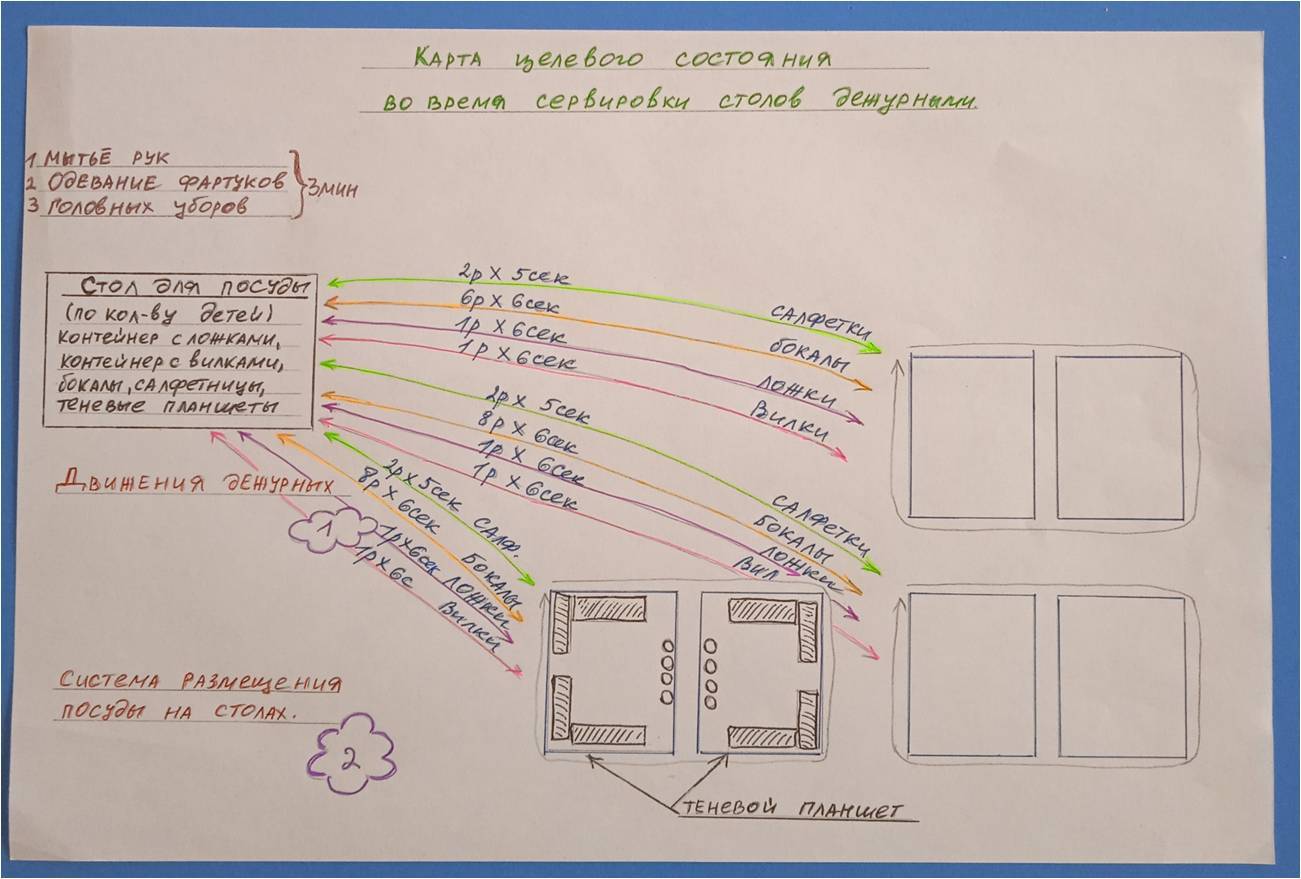 Карта целевого состояния
во время сервировки столов дежурными.
1 Мытьё рук
2 Одевание фартуков
3 Головных уборов
3мин
Стол для посуды
(по кол-ву детей)
контейнер с ложками,
контейнер с вилками,
бокалы, салфетницы,
теневые планшеты
2р х 5сек
салфетки
6р х 6сек
бокалы
1р х 6сек
ложки
1р х 6сек
вилки
2р х 5сек
салфетки
8р х 6сек
бокалы
1р х 6сек
ложки
1р х 6сек
вил
Движения дежурных
1
2р х 5сек салф.
8р х 6сек бокалы
1р х 6сек ложки
1р х 6с вилки
Система размещения
посуды на столах.
2
теневой планшет